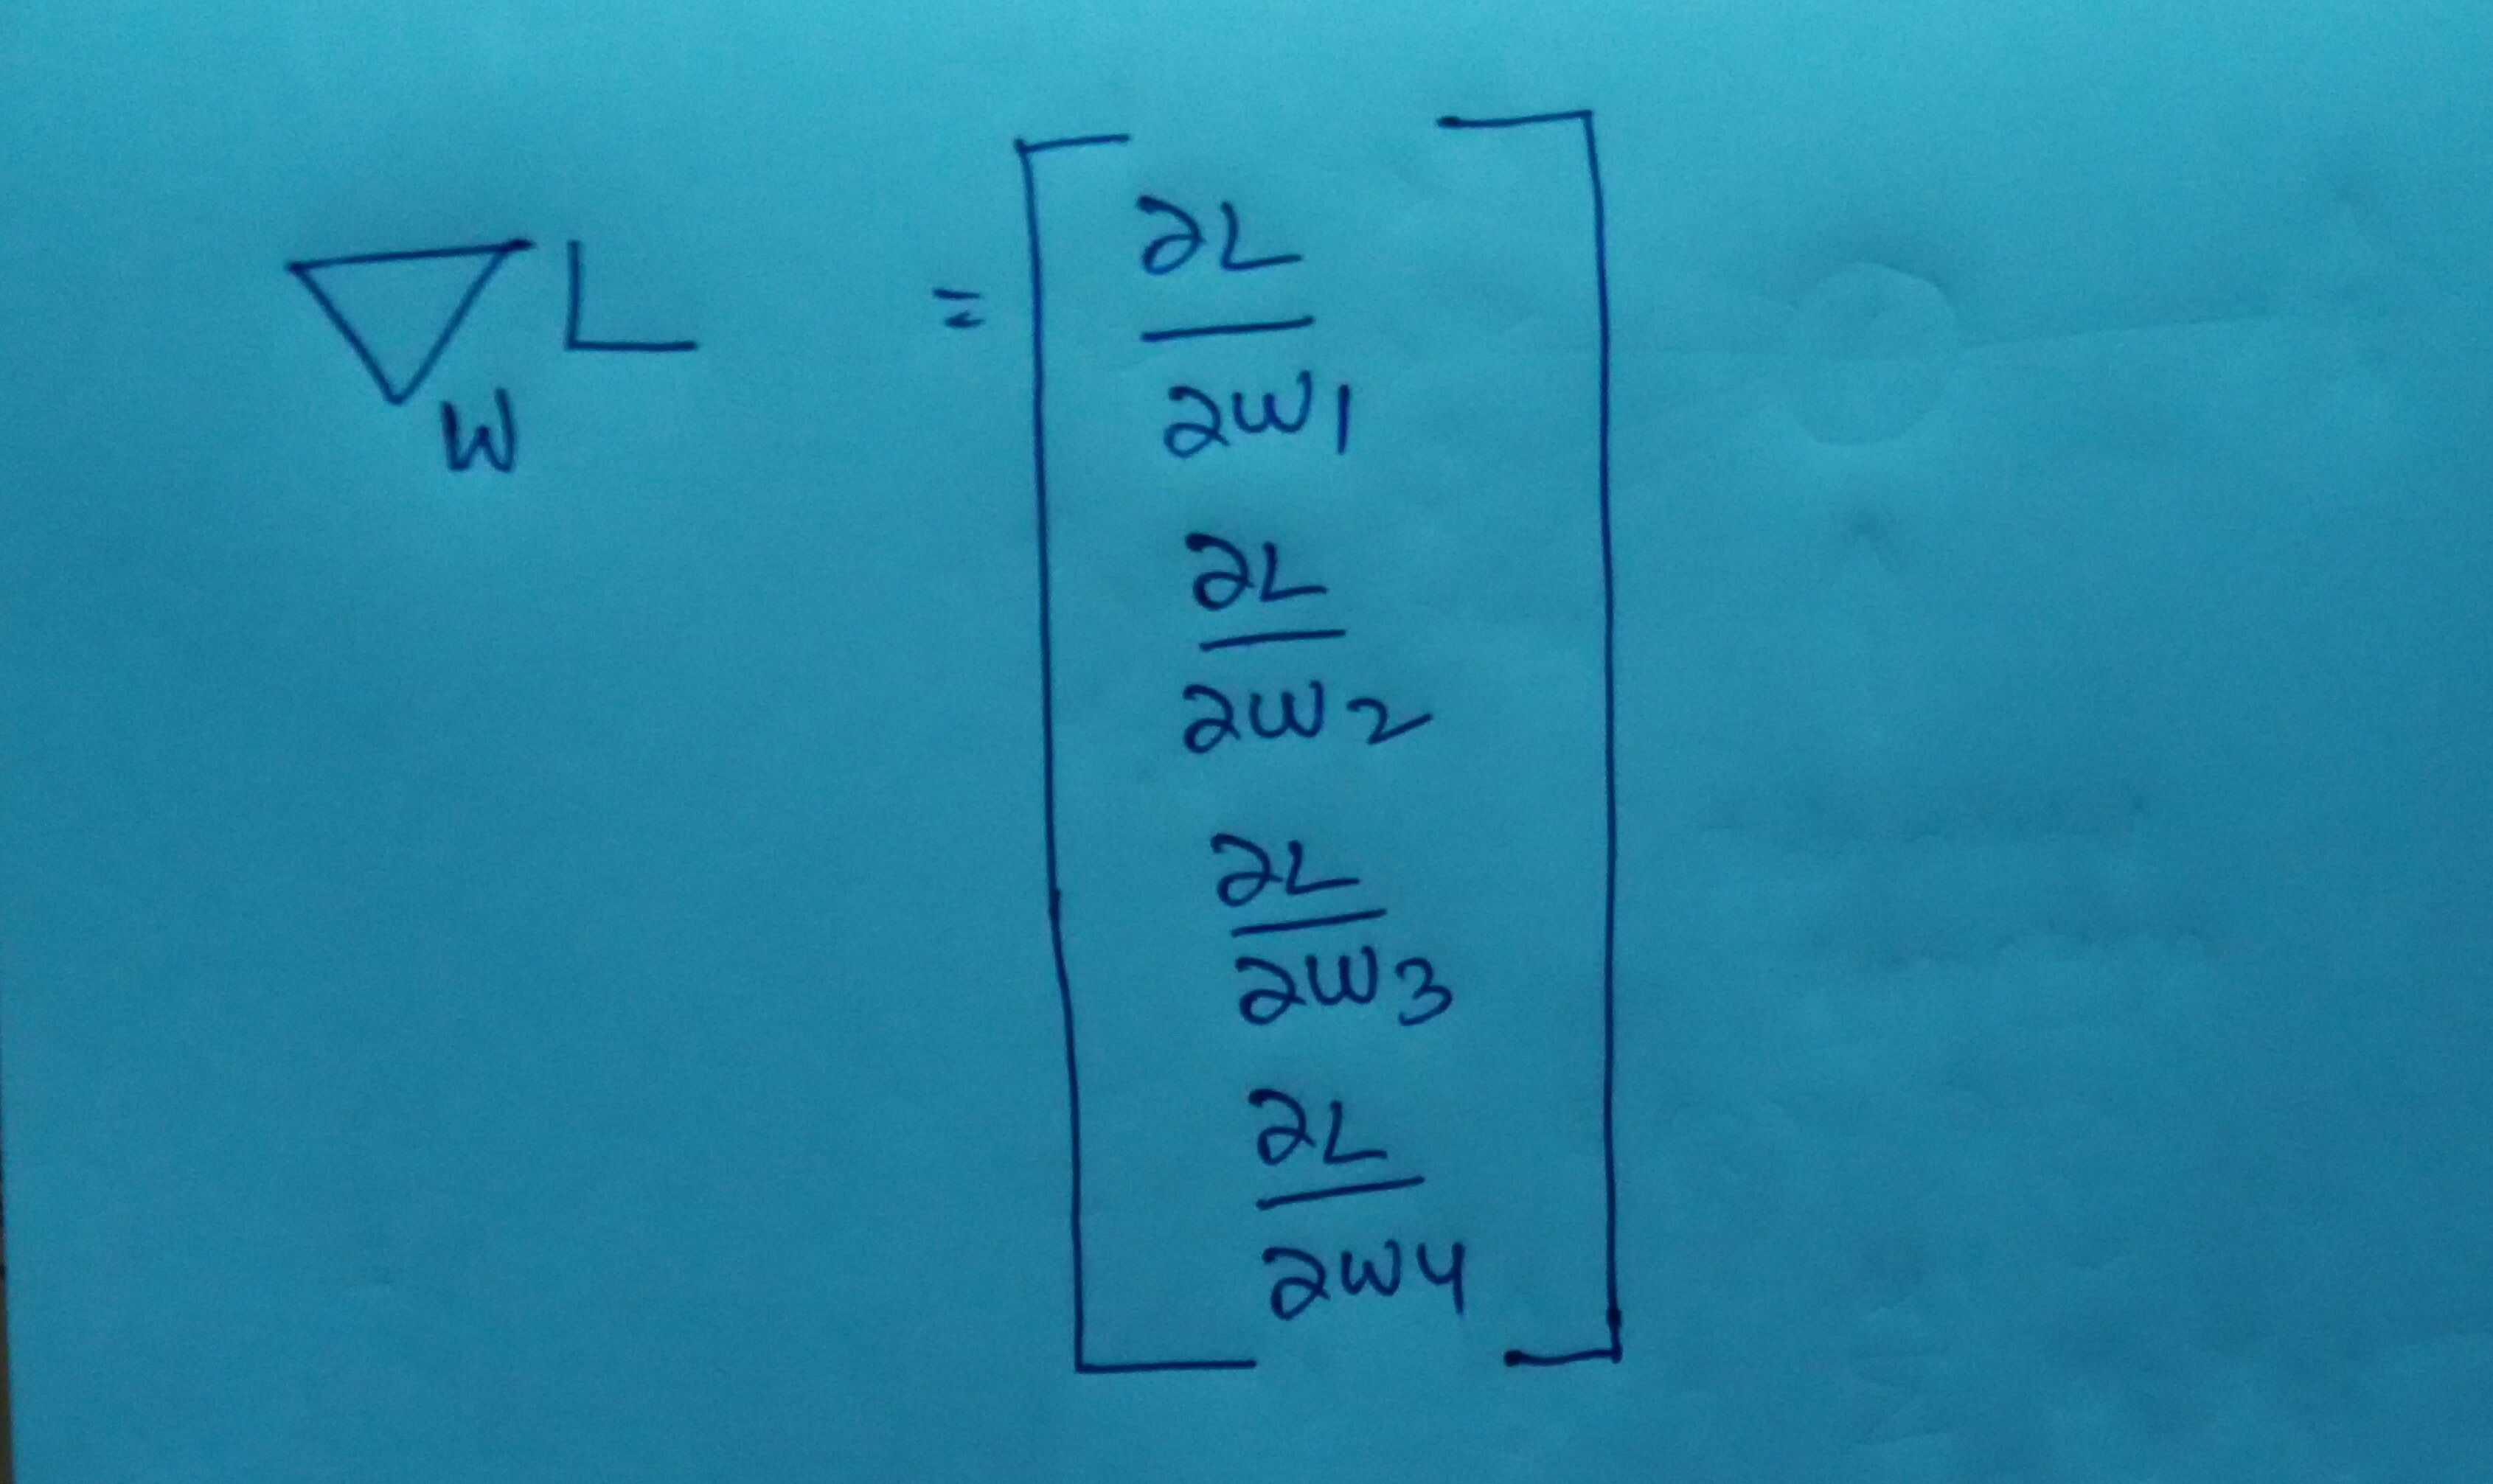 ∇_W L = [
∂L
∂W1
∂L
∂W2
∂L
∂W3
∂L
∂W4
]